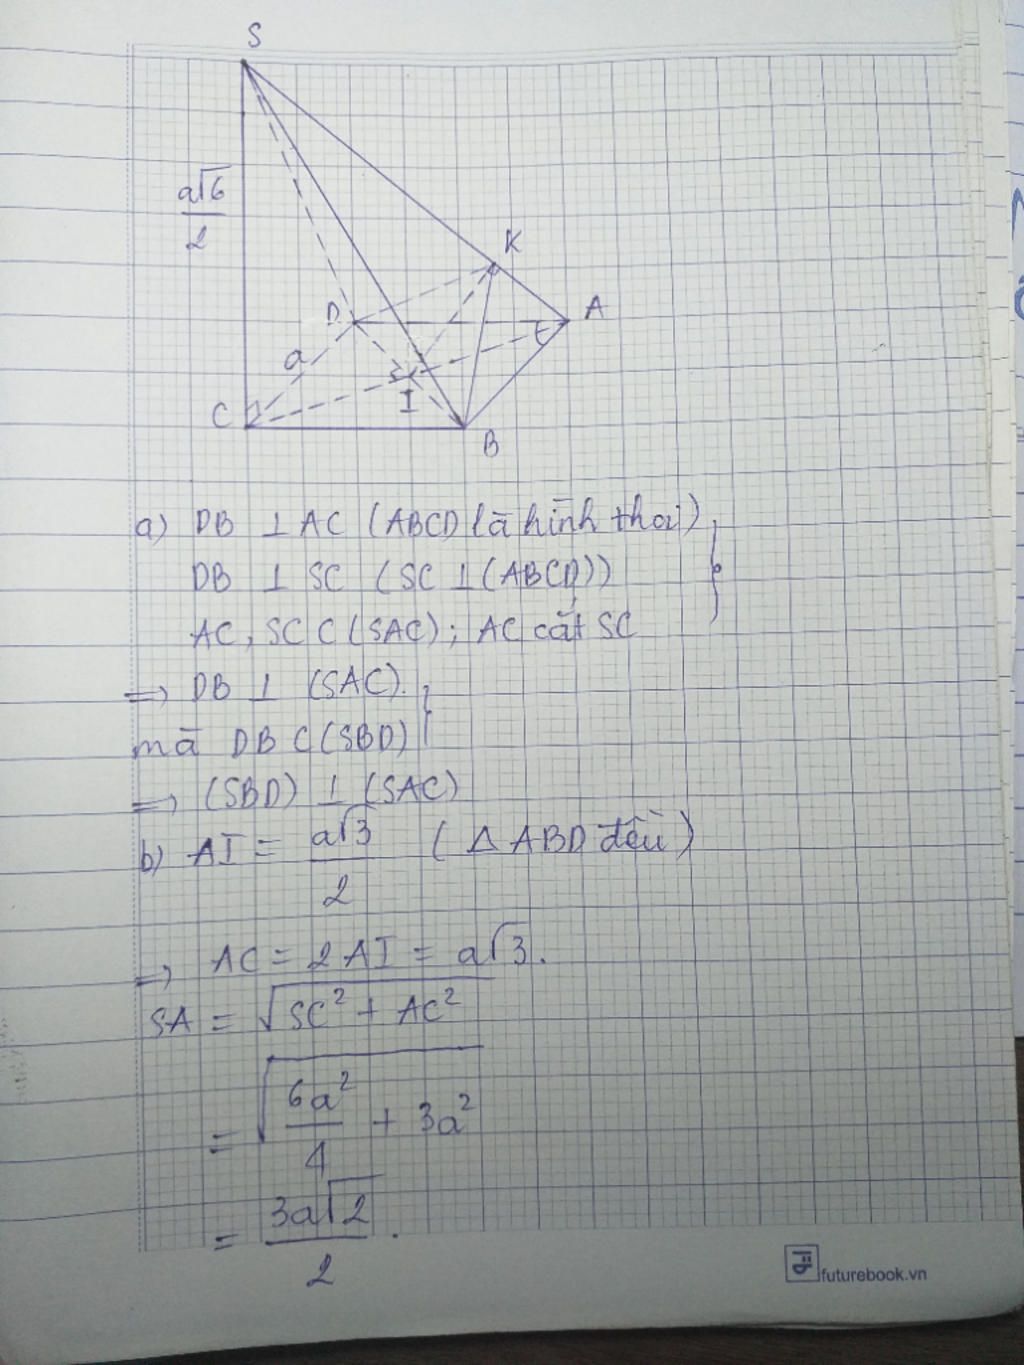 S
a√6
2
K
D
A
a
C
I
B
a) DB ⊥ AC (ABCD là hình thoi)
DB ⊥ SC (SC ⊥ (ABCD))
AC, SC ⊂ (SAC); AC cắt SC
=> DB ⊥ (SAC).
mà DB ⊂ (SBD)
=> (SBD) ⊥ (SAC)
b) AI = a√3/2 (Δ ABD đều)
=> AC = 2AI = a√3.
SA = √(SC² + AC²)
= √(6a²/4 + 3a²)
= 3a√2/2.
futurebook.vn